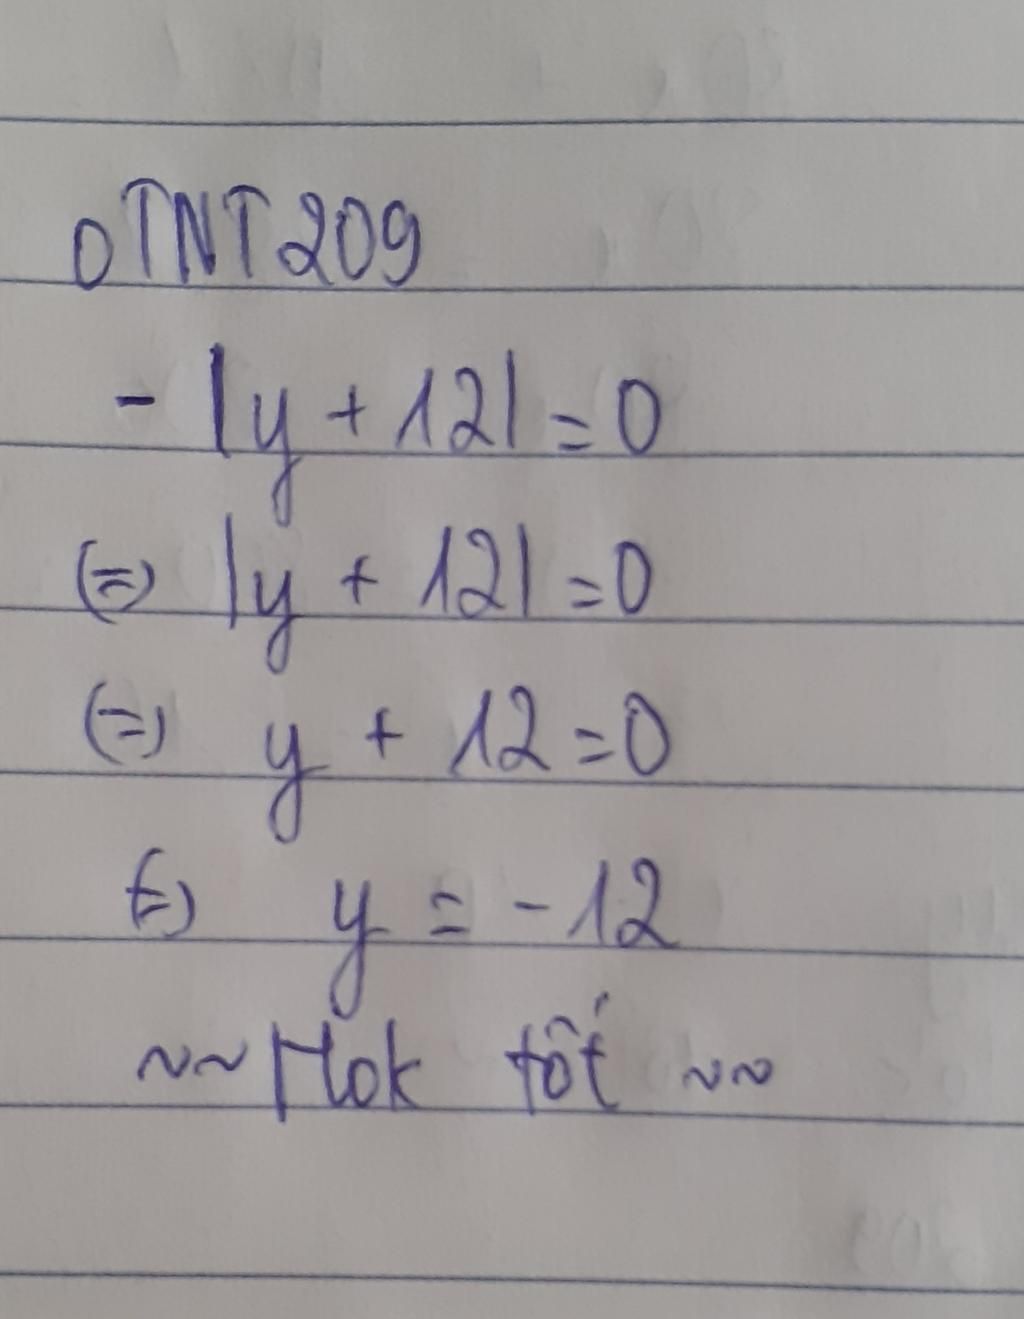 oTNT209
- |y + 12| = 0
(=) |y + 12| = 0
(=) y + 12 = 0
(=) y = -12
~~ Hok tốt ~~